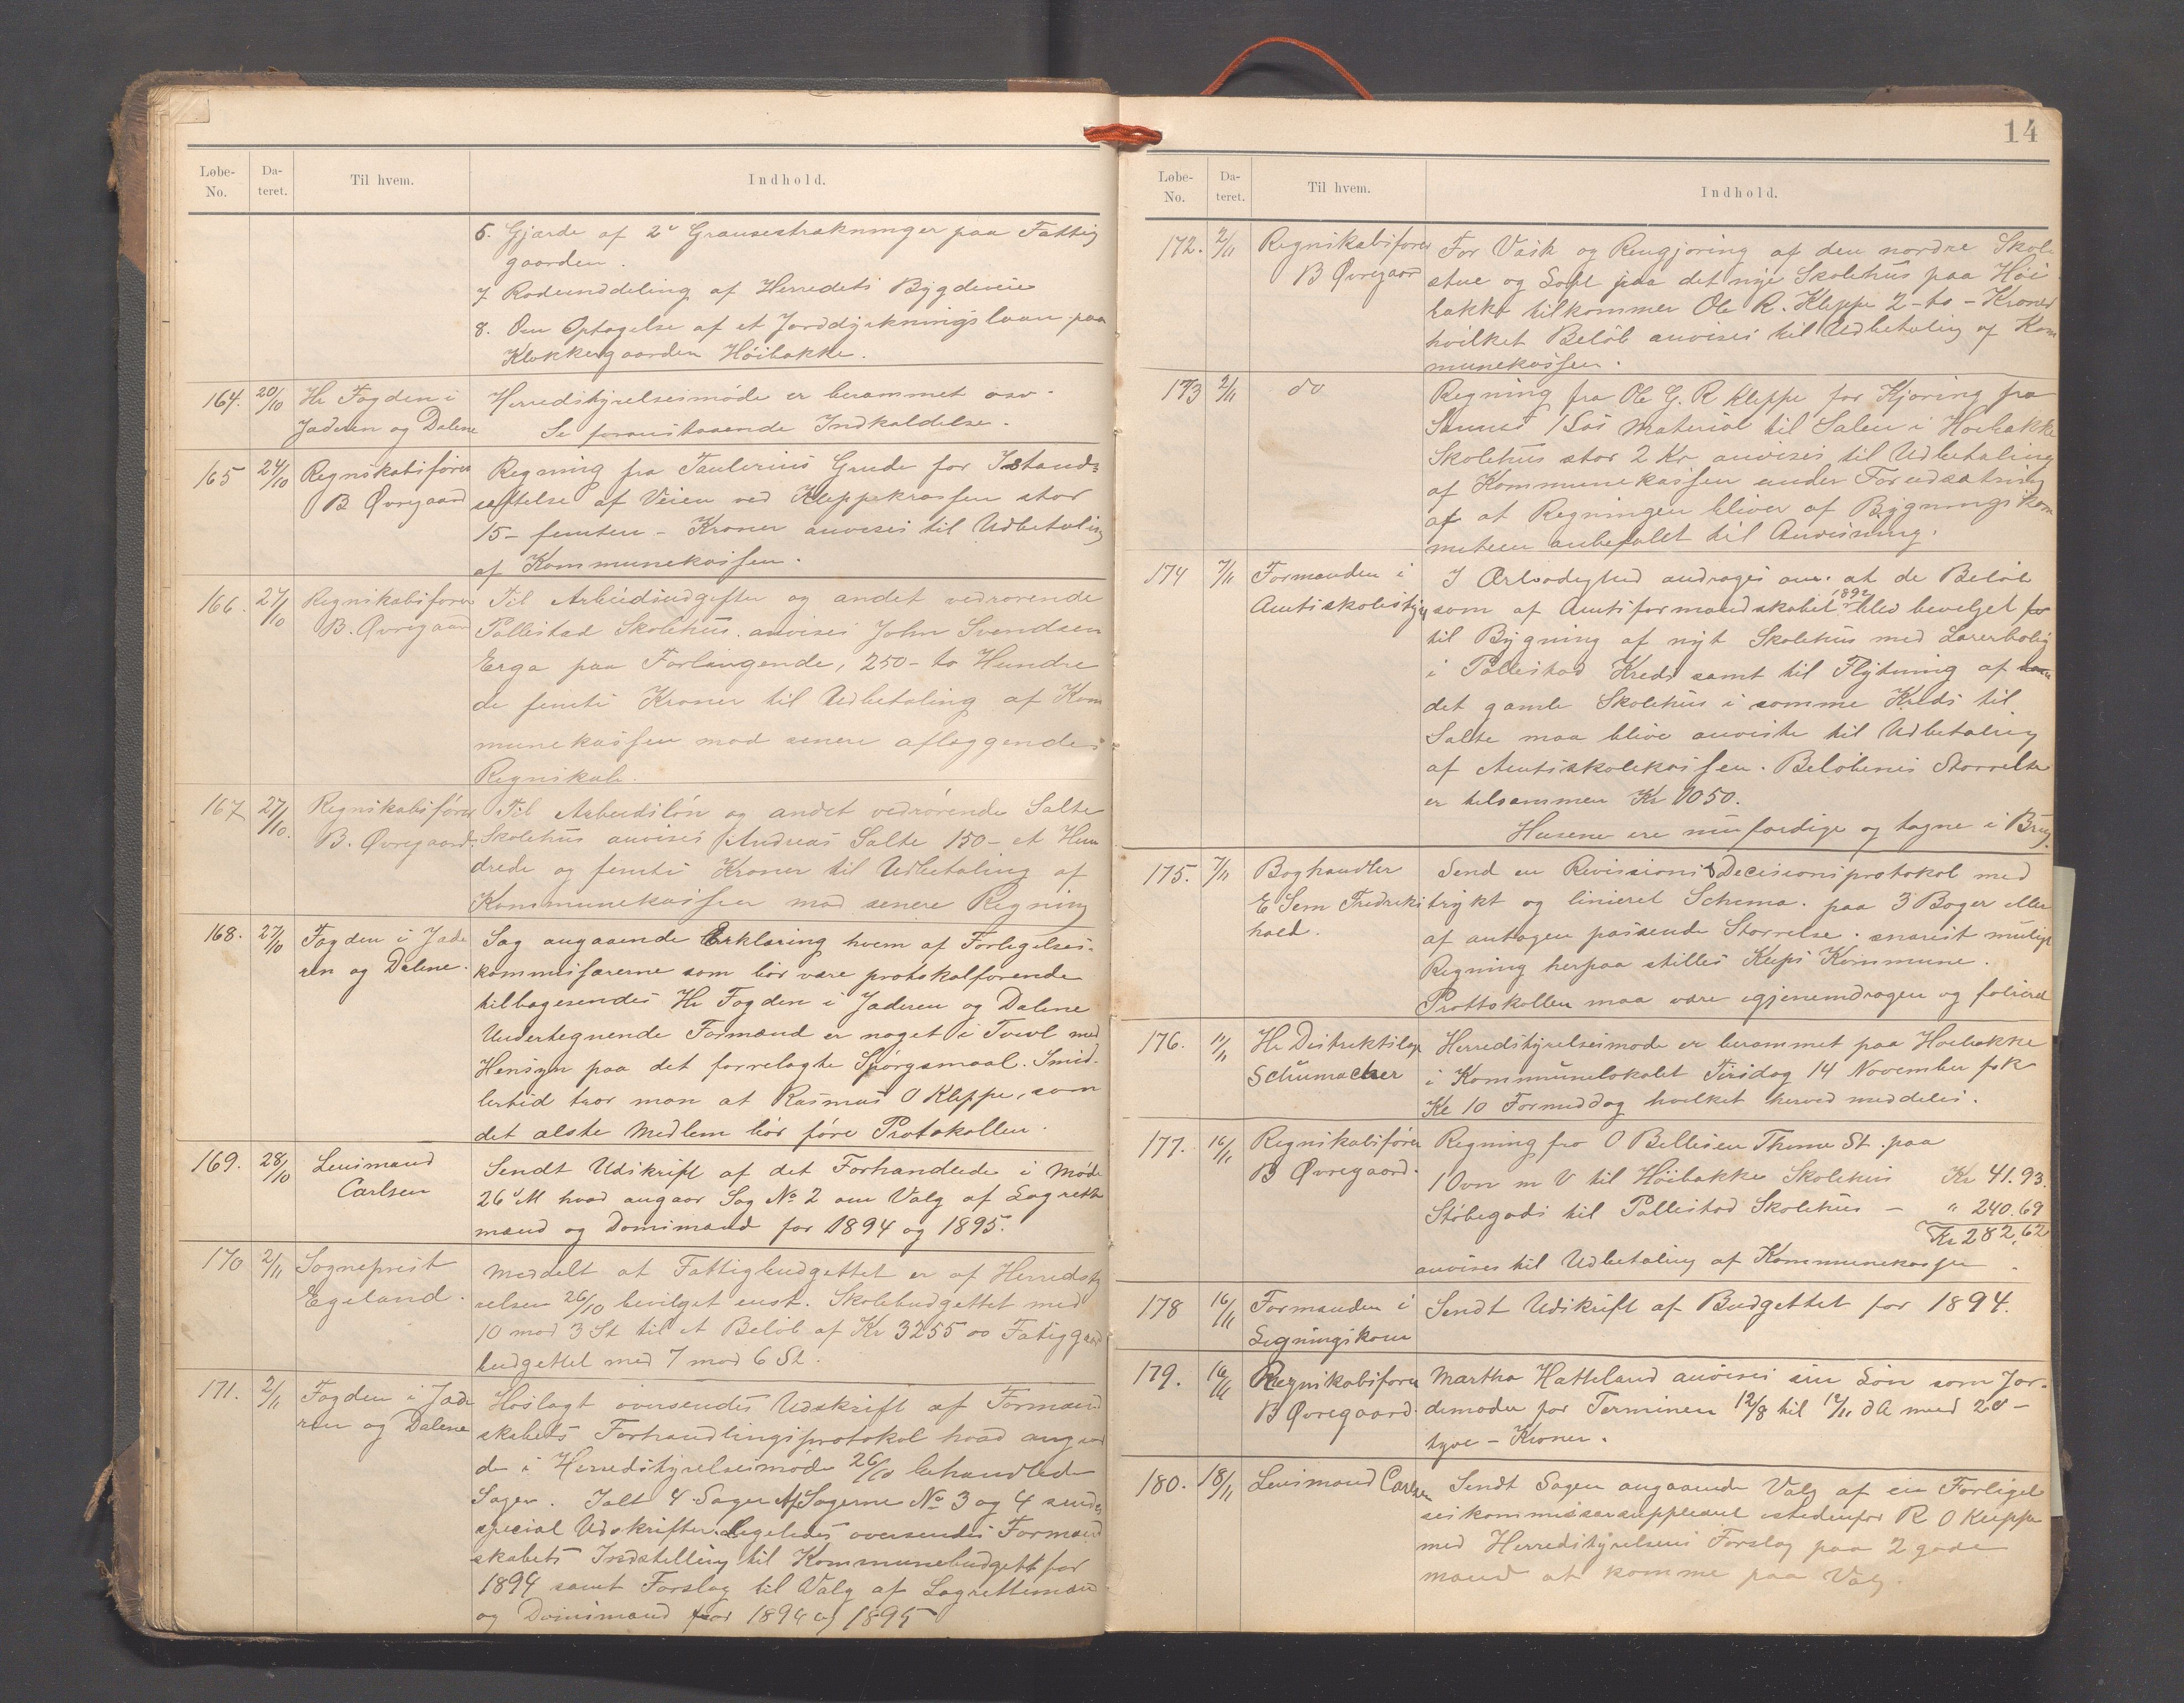 Løbe-No. Da-teret. Til hvem. Indhold.
6. Gjærde af 2de Grænsestrækninger paa Fattig
gaarden.
7 Rodeinddeling af Herredets Bygdeveie
8. Om Optagelse af et Jorddyrkningslaan paa
Klokkergaarden Höibakke.
164. 20/10 Hr Fogden i Herredstyrelsesmöde er berammet osv.
Jæderen og Dalene Se foranstaaende Indkaldelse.
165 24/10 Regnskabsfører Regning fra Taulerius Grude for Istand-
B Øvregaard sættelse af Veien ved Kleppekrossen stor
15- femten - Kroner anvises til Udbetaling
af Kommunekassen.
166. 27/10 Regnskabsfører Til Arbeidsudgifter og andet vedrørende
B. Øvregaard Pollestad Skolehus. anvises John Svendsen
Erga paa Forlangende, 250- to Hundre
de femti Kroner til Udbetaling af Kom
munekassen mod senere aflæggendes
Regnskab.
167 27/10. Regnskabsfører Til Arbeidslön og andet vedrörende Salte
B. Øvregaard. Skolehus anvises Andreas Salte 150- et Hun
drede og femti Kroner til Udbetaling af
Kommunekassen mod senere Regning
168. 27/10 Fogden i Jæde Sag angaaende Erklæring hvem af Forligelses-
ren og Dalene. kommissærerne som bör være protokolförende
tilbagesendes Hr Fogden i Jæderen og Dalene
Undertegnende Formand er noget i Tvivl med
Hensyn paa det forrelagte Spörgsmaal. Imid-
lertid tror man at Rasmus O Kleppe, som
det ælste Medlem bör före Protokollen.
169. 28/10 Lensmand Sendt Udskrift af det Forhandlede i Möde
Carlsen 26 d M hvad angaar Sag No 2 om Valg af Lagrette
mænd og Domsmænd for 1894 og 1895.
170 2/11 Sogneprest Meddelt at Fattigbudgettet er af Herredsty
Egeland. relsen 26/10 bevilget enst. Skolebudgettet med
10 mod 3 St til et Beløb af Kr 3255 00 Fatiggaard
budgettet med 7 mod 6 St.
171. 2/11 Fogden i Jæde Hoslagt oversendes Udskrift af Formand
ren og Dalene skabets Forhandlingsprotokol hvad angaaer
de i Herredstyrelsesmöde 26/10 behandlede
Sager. Ialt 4 Sager Af Sagerne No 3 og 4 sendes
special Udskrifter. Ligeledes oversendes Formand
skabets Indstilling til Kommunebudgett for
1894 samt Forslag til Valg af Lagrettemænd
og Domsmænd for 1894 og 1895
14
Løbe-No. Da-teret. Til hvem. Indhold.
172. 2/11 Regnskabsfører For Vask og Rengjøring af den nordre Skole
B Øvregaard stue og Loft paa det nye Skolehus paa Høi
bakke tilkommer Ole R. Kleppe 2-to-Kroner
hvilket Beløb anvises til Udbetaling af Kom
munekassen.
173 2/11 do Regning fra Ole G. R Kleppe for Kjøring fra
Sannes 1 Læs Material til Salen i Høibakke
Skolehus stor 2 Kr anvises til Udbetaling
af Kommunekassen under Forudsætning
af at Regningen bliver af Bygningskom
miteen anbefalet til Anvisning.
174 7/11 Formanden i I Ærbødighed andrages om. at de Beløb
Amtsskolestyre som af Amtsformandskabet 1892 blev bevilget for
til Bygning af nyt Skolehus med Lærerbolig
i Pollestad Kreds samt til Flytning af
det gamle Skolehus i samme Kreds til
Salte maa blive anviste til Udbetaling
af Amtsskolekassen. Beløbenes Størrelse
er tilsammen Kr 1050.
Husene ere nu færdige og tagne i Brug.
175. 7/11 Boghandler Send en Revisions & Decisionsprotokol med
E Sem Fredriks trykt og linieret Schema. paa 3 Bøger eller
hald. af antagen passende Størrelse. snarest muligt
Regning herpaa stilles Kleps Kommune.
Prottokollen maa være igjenemdragen og folieret
176. 11/11 Hr Distriktslæge Herredstyrelsesmøde er berammet paa Høibakke
Schumacher i Kommunelokalet Tirsdag 14 November fstk
Kl 10 Formiddag hvilket herved meddeles.
177. 16/11 Regnskabsfører Regning fra O Bellesen Theme St. paa
B Øvregaard. 1 Ovn m V til Høibakke Skolehus Kr 41.93.
Støbegods til Pollestad Skolehus - " 240.69
Kr 282,62
anvises til Udbetaling af Kommunekassen.
178 16/11 Formanden i Sendt Udskrift af Budgettet for 1894.
Ligningskom
179. 16/11 Regnskabsfører Martha Hatteland anvises sin Løn som Jor-
B Øvregaard. demoder for Terminen 12/8 til 12/11 d A med 20-
tyve - Kroner.
180. 18/11 Lensmand Carlsen Sendt Sagen angaaende Valg af en Forligel
seskommissærsuppleant istedenfor R O Kleppe
med Herredstyrelsens Forslag paa 2 gode
mænd at komme paa Valg.